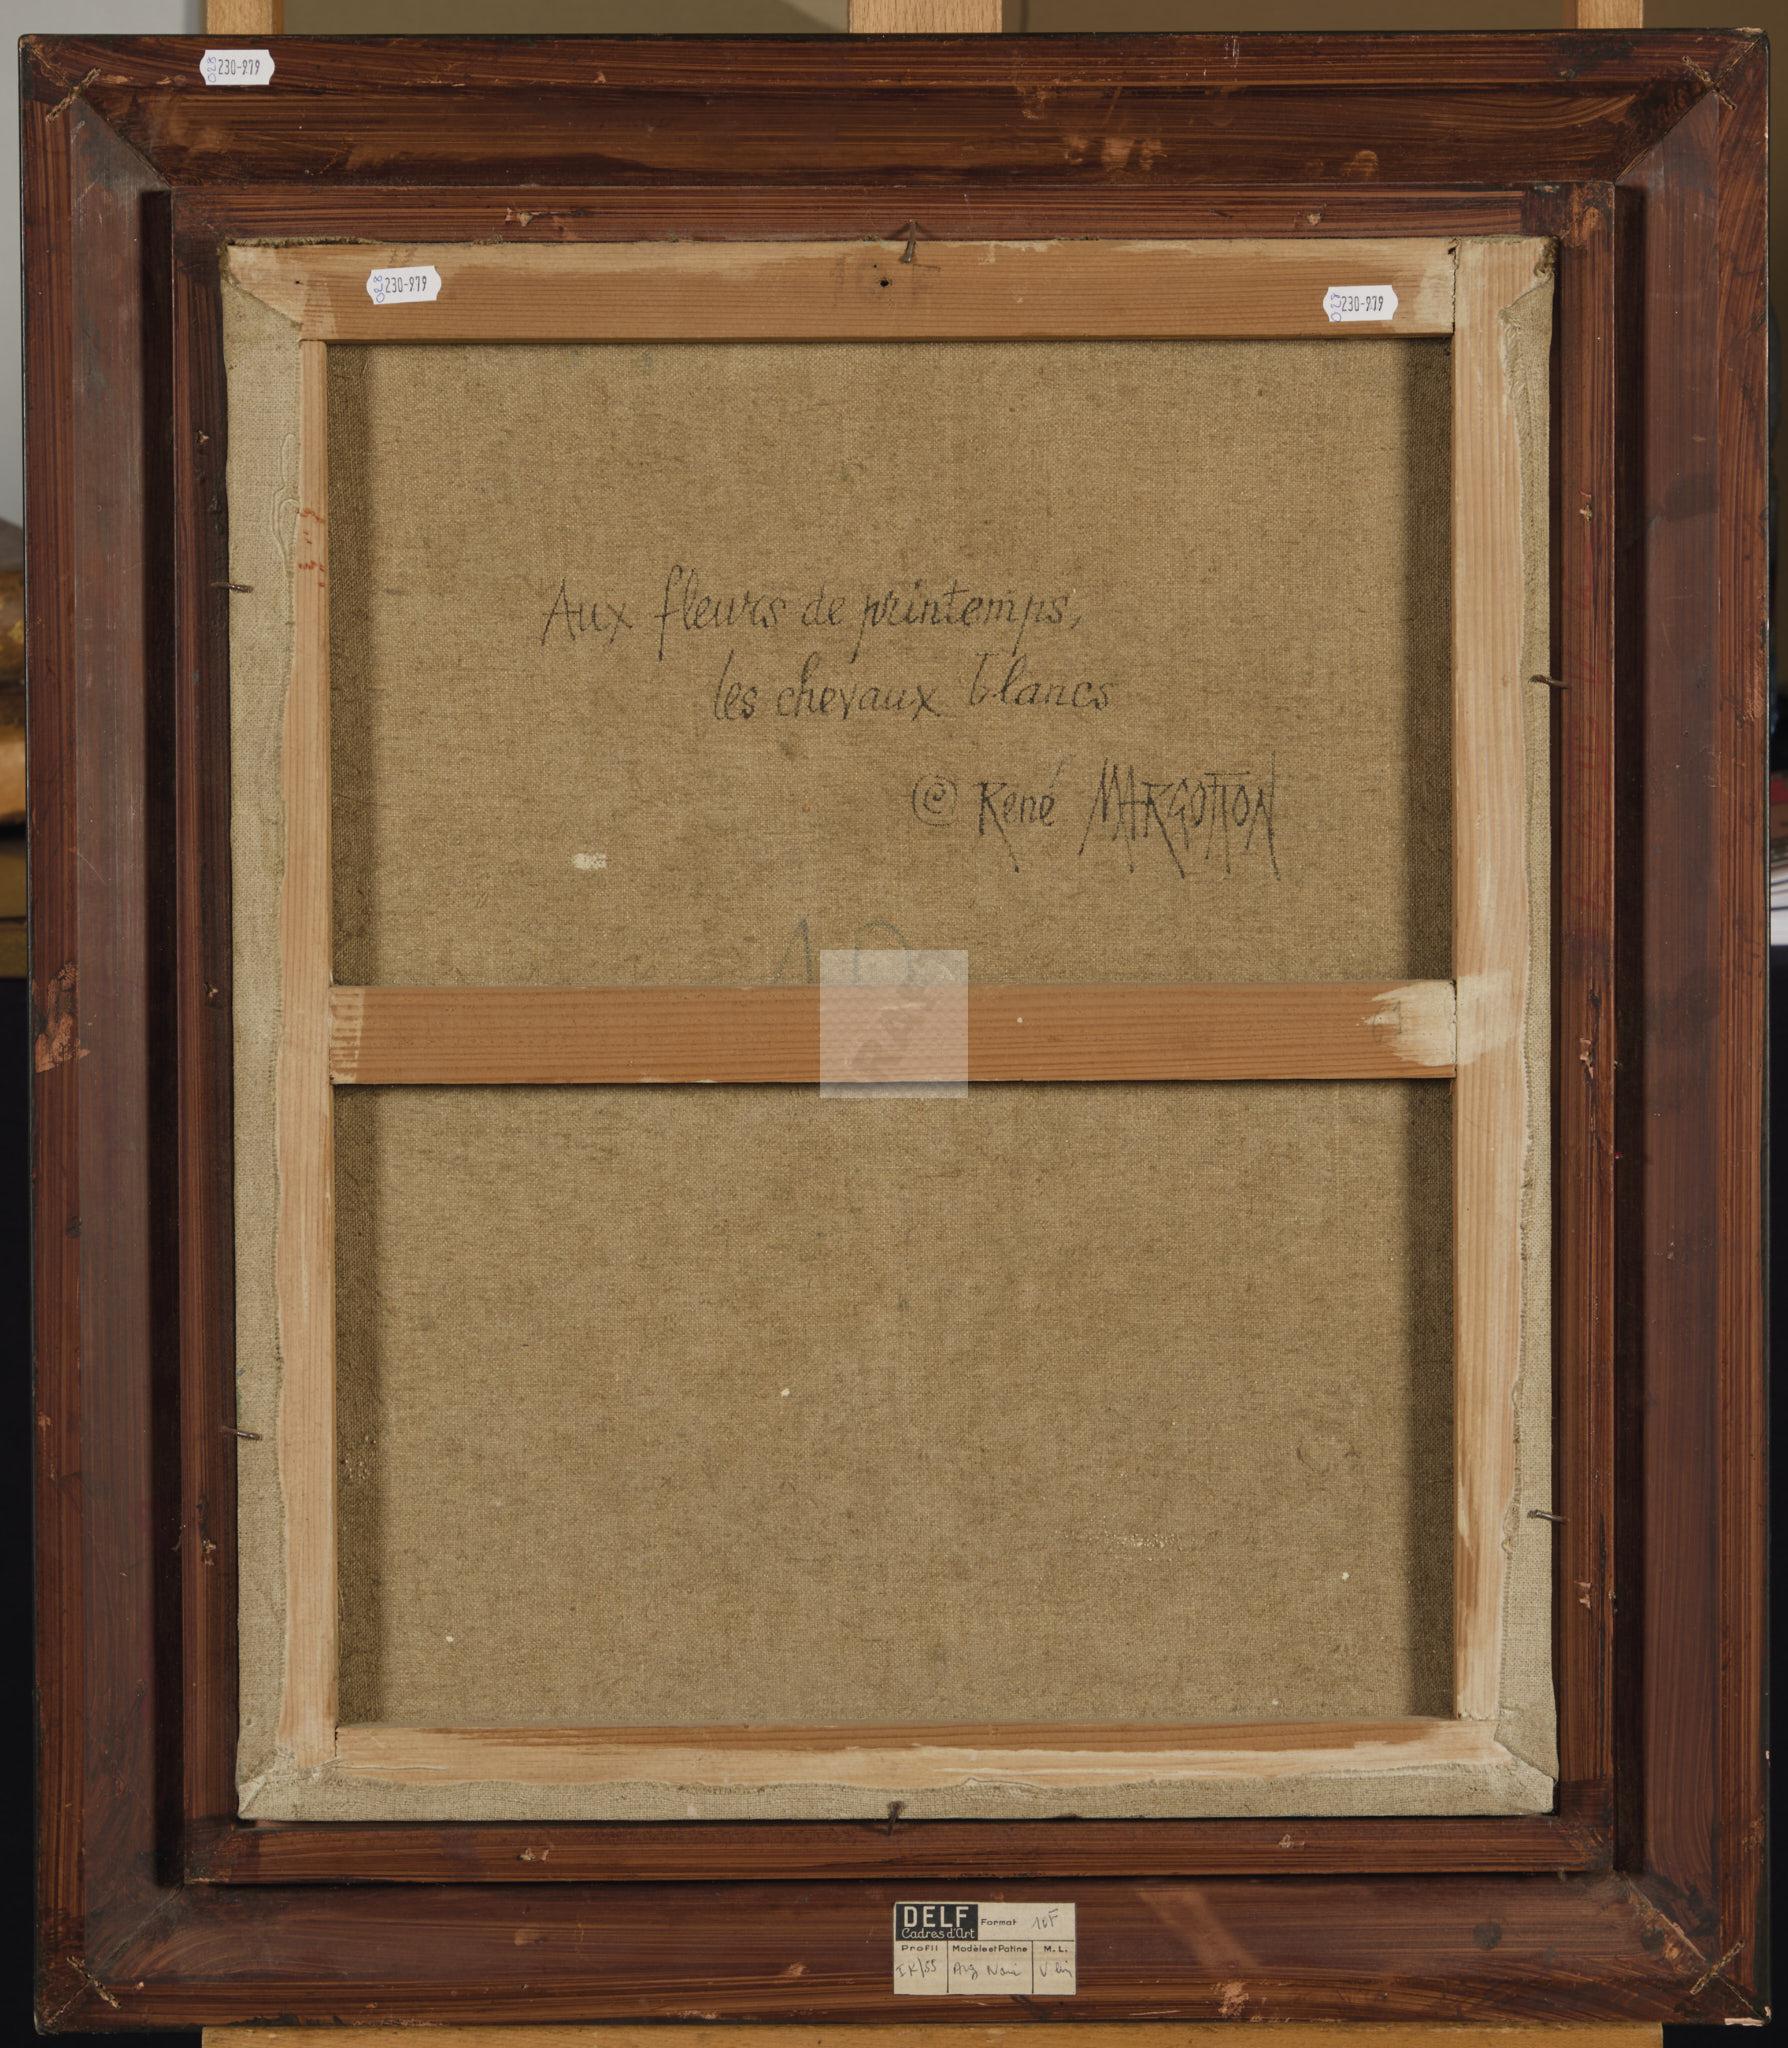 028 230-979
028 230-979
028 230-979
Aux fleurs de printemps,
les chevaux blancs
© René MARGOTTON
10
DELF
Cadres d'Art
Format 10F
Profil
Modèle et Patine
M.L.
Arg Noir